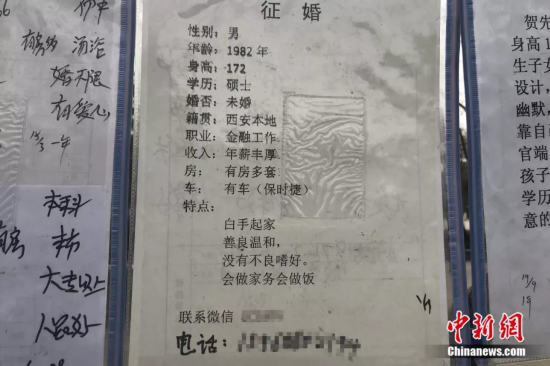 征婚
性别：男
年龄：1982年
身高：172
学历：硕士
婚否：未婚
籍贯：西安本地
职业：金融工作
收入：年薪丰厚
房：有房多套
车：有车（保时捷）
特点：
白手起家
善良温和，
没有不良嗜好。
会做家务会做饭
联系微信
电话：
婚不限
有爱心
一年
本科
本市
大专以上
贺先
身高1
生子女
设计，
幽默，
靠自
官端
孩子
学历
意的
中新网
Chinanews.com